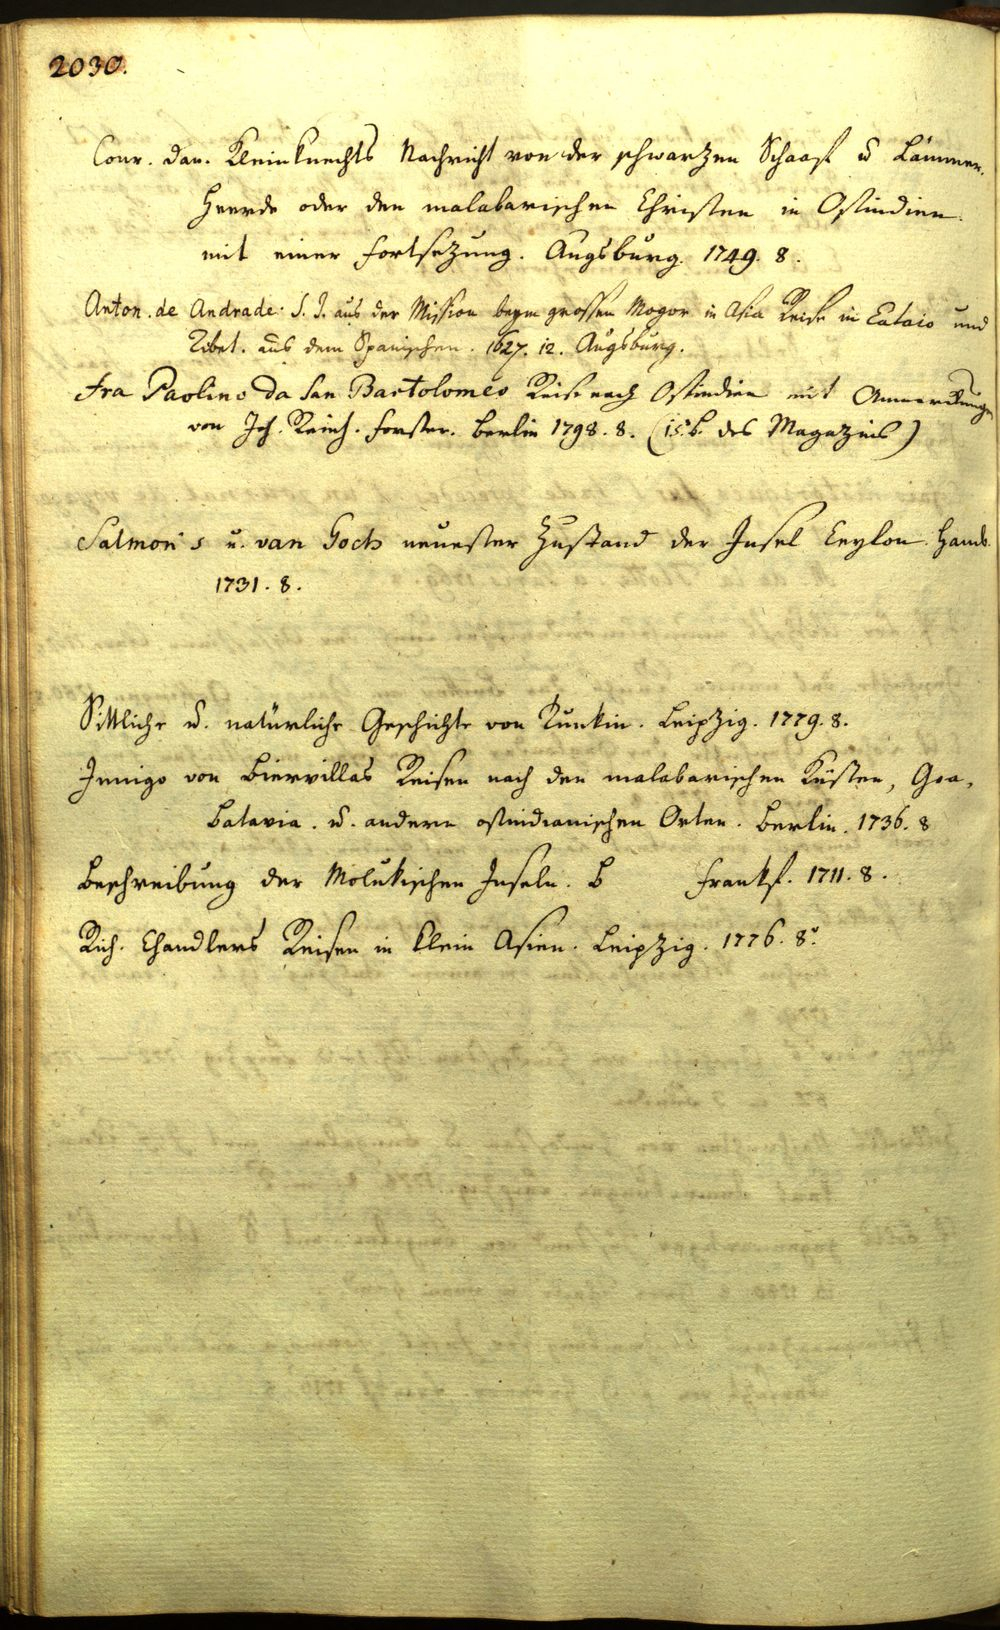 2030.
Conr. Dan. Kleinknechts Nachricht von der schwarzen Schaaf u Lämmer-
Heerde oder den malabarischen Christen in Ostindien.
mit einer Fortsezung. Augsburg. 1749. 8.
Anton. de Andrade. S. J. aus der Mission beym grossen Mogor in Asia Reise in Cataio und
Tibet. aus dem Spanischen. 1627. 12. Augsburg.
Fra Paolino Da San Bartolomeo Reise nach Ostindien mit Anmerkungen
von Joh. Reinh. Forster. Berlin 1798. 8. (15. B. des Magazins)
Salmon's u. van Goch neuester Zustand der Insel Ceylon. Hamb.
1731. 8.
Sittliche u. natürliche Geschichte von Tunkin. Leipzig. 1779. 8.
Innigo von Biervillas Reisen nach den malabarischen Küsten, Goa,
Batavia. u. andern ostindianischen Orten. Berlin. 1736. 8
Beschreibung der Molukischen Inseln. B Frankf. 1711. 8.
Rich. Chandlers Reisen in klein Asien. Leipzig. 1776. 8.